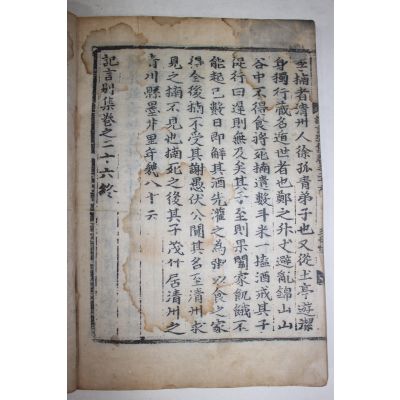 至補者清州人徐孤青弟子也又從土亭遊潔
身獨行藏名遁世者也鄭之外丈避亂錦山山
谷中不得食將死補遺數斗米一壚酒戒其子
促行曰遲則無及矣其子至則果闔家飢餓不
能起已數日即解其酒先灌之為粥以食之家
得全後補不受其謝愚伏公聞其名至清州求
見之補不見也補死之後其子茂什居清州之
青川縣墨井里年幾八十云
記言別集卷之二十六終